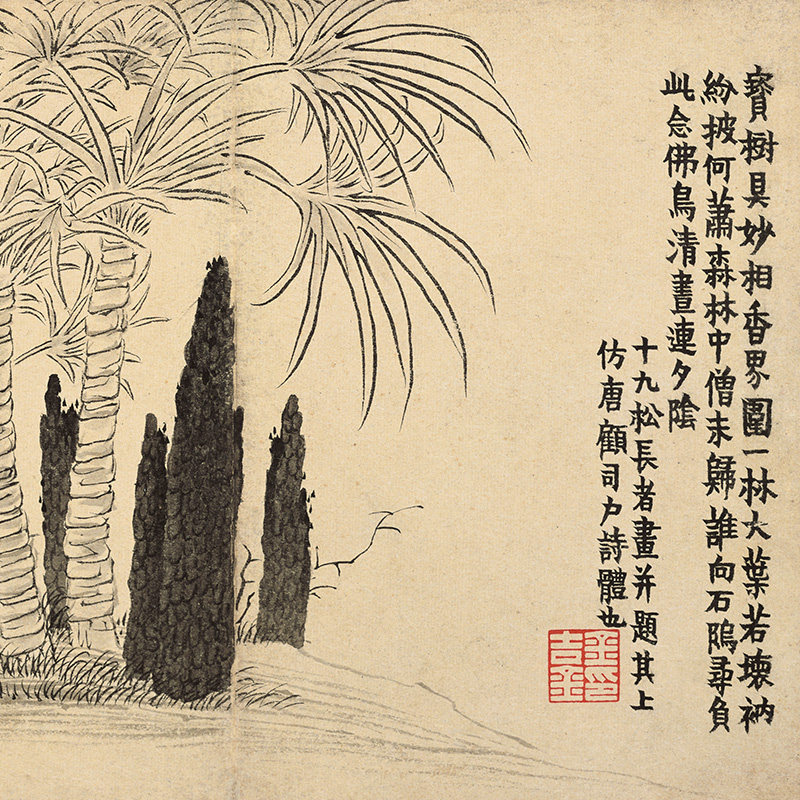 寳樹具妙相香界圍一林大葉若壞衲
紛披何蕭森林中僧未歸誰向石隖尋負
此念佛鳥清晝連夕陰
十九松長者畫并題其上
仿唐顧司户詩體也
金吉金印